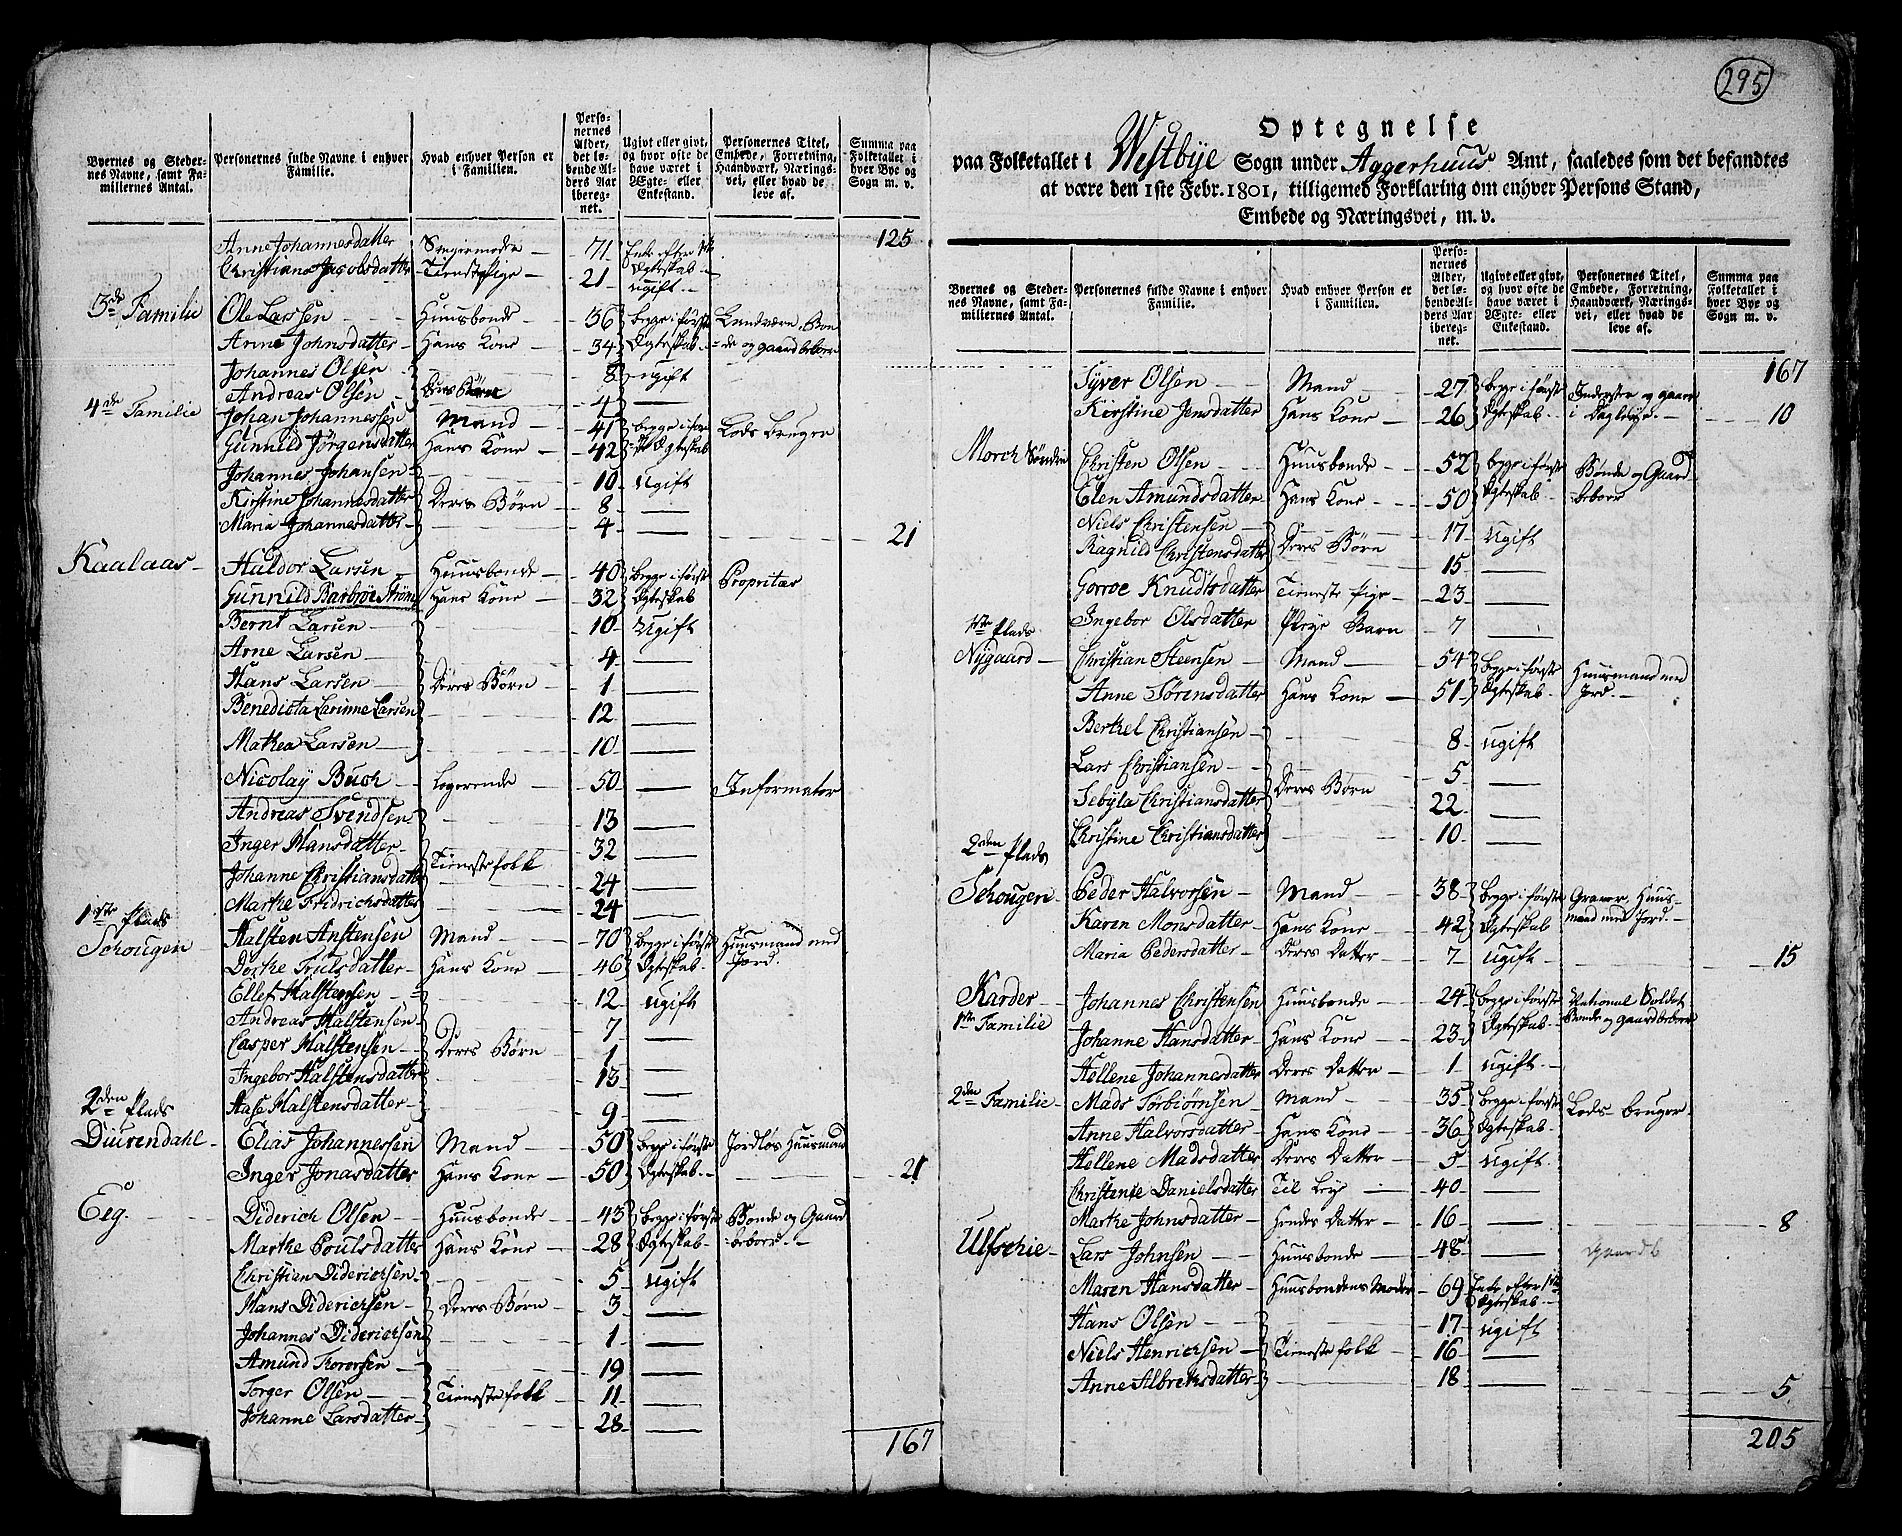 295
Byernes og Steder-
nes Navne, samt Fa-
miliernes Antal.
Personernes fulde Navne i enhver
Familie.
Hvad enhver Person er
i Familien.
Perso-
nernes
Alder,
det lø-
bende Al-
ders Aar
ibereg-
net.
Ugivt eller givt,
og hvor ofte de
have været i
Ægte- eller
Enkestand.
Personernes Titel,
Embede, Forretning,
Haandværk, Nærings-
vei, eller hvad de
leve af.
Summa paa
Folketallet i
hver Bye og
Sogn m. v.
125
Anne Johannesdatter Svigermoder 71 Enke efter 1ste Ægteskab
Christiane Jacobsdatter Tienestepige 21 ugift
3de Familie Ole Larssen Huusbonde 36 begge i første Landværn, Bon
Anne Johnsdatter Hans Kone 34 Ægteskab de og gaardbeboer
Johannes Olsen 8 ugift
Andreas Olsen Deres Børn 4
4de Familie Johan Johannessen Mand 41 begge i før- Lods bruger
Gunnild Jörgensdatter Hans Kone 42 ste Ægteskab
Johannes Johansen 10 ugift
Kirstine Johannesdatter Deres Børn 8
Maria Johannesdatter 4 21
Kaalaas Haldor Larsen Huusbonde 40 begge i første Propritær
Gunnild Barbroe Ström Hans Kone 32 Ægteskab
Bernt Larsen 10 Ugift
Arne Larsen 4
Hans Larsen Deres Børn 1
Benedicta Larinne Larsen 12
Mathea Larsen 10
Nicolaÿ Buch Logerende 50 Informator
Andreas Svendsen 13
Inger Hansdatter 32
Johanne Christiansdatter Tienestefolk 24
Marthe Fridrichsdatter 24
1ste Plads
Schougen Halsten Anstensen Mand 70 begge i første Huusmand med
Dorthe Trulsdatter Hans Kone 46 Ægteskab Jord.
Ellef Halstensen 12 ugift
Andreas Halstensen 7
Casper Halstensen Deres Børn 1
Ingebor Halstensdatter 13
Aase Halstensdatter 9
2den Plads
Diurendahl Elias Johannessen Mand 50 begge i første Jordløs Huusmand
Inger Jonasdatter Hans Kone 50 Ægteskab 21
Eeg Diderich Olsen Huusbonde 43 begge i første Bonde og Gaard
Marthe Poulsdatter Hans Kone 28 Ægteskab beboer
Christian Diderichsen 5 ugift
Hans Diderichsen Deres Børn 3
Johannes Diderichsen 1
Amund Thorersen 19
Torger Olsen Tienestefolk 11
Johanne Larsdatter 28
167
Optegnelse
paa Folketallet i Westbÿe Sogn under Aggerhuus Amt, saaledes som det befandtes
at være den 1ste Febr. 1801, tilligemed Forklaring om enhver Persons Stand,
Embede og Næringsvei, m. v.
Byernes og Steder-
nes Navne, samt Fa-
miliernes Antal.
Personernes fulde Navne i enhver
Familie.
Hvad enhver Person er
i Familien.
Perso-
nernes
Alder,
det lø-
bende Al-
ders Aar
ibereg-
net.
Ugivt eller givt,
og hvor ofte de
have været i
Ægte- eller
Enkestand.
Personernes Titel,
Embede, Forretning,
Haandværk, Nærings-
vei, eller hvad de
leve af.
Summa paa
Folketallet i
hver Bye og
Sogn m. v.
167
Syver Olsen Mand 27 begge i første Inderste og gaar
Kirstine Jensdatter Hans Kone 26 Ægteskab i Dagleje 10
Morch Sönden Christen Olsen Huusbonde 52 begge i første Bonde og Gaard
Elen Amundsdatter Hans Kone 50 Ægteskab beboer
Niels Christensen 17 ugift
Ragnild Christensdatter Deres Børn 15
Gorroe Knudtsdatter Tieneste Pige 23
Ingebor Olsdatter Pleye Barn 7
1ste Plads
Nÿgaard Christian Steensen Mand 54 begge i første Huusmand med
Anne Sörensdatter Hans Kone 51 Ægteskab Jord.
Berthel Christiansen 8 ugift
Lars Christiansen 5
Sebÿla Christiansdatter Deres Børn 22
Christine Christiansdatter 10
2den Plads
Schougen Peder Halvorsen Mand 38 begge i første Graver, Huus-
Karen Monsdatter Hans Kone 42 Ægteskab mand med Jord.
Maria Pedersdatter Deres Datter 7 ugift 15
Karder Johannes Christensen Huusbonde 24 begge i første National Soldat
1ste Familie Johanne Hansdatter Hans Kone 23 Ægteskab Bonde og gaardbeboer
Hellene Johannesdatter Deres Datter 1 ugift
2den Familie Mads Torbiørnsen Mand 35 begge i første Lods bruger
Anne Halvorsdatter Hans Kone 36 Ægteskab
Hellene Madsdatter Deres Datter 5 ugift
Christense Danielsdatter Til Leye 40
Marthe Johnsdatter Hendes Datter 16 8
Ulfschie Lars Johnsen Huusbonde 48 gaardb
Maren Hansdatter Huusbondens Moder 69 Enke efter 1ste Ægteskab
Hans Olsen 17 ugift
Niels Henrichsen Tienestefolk 16
Anne Albrechsdatter 18 5
205